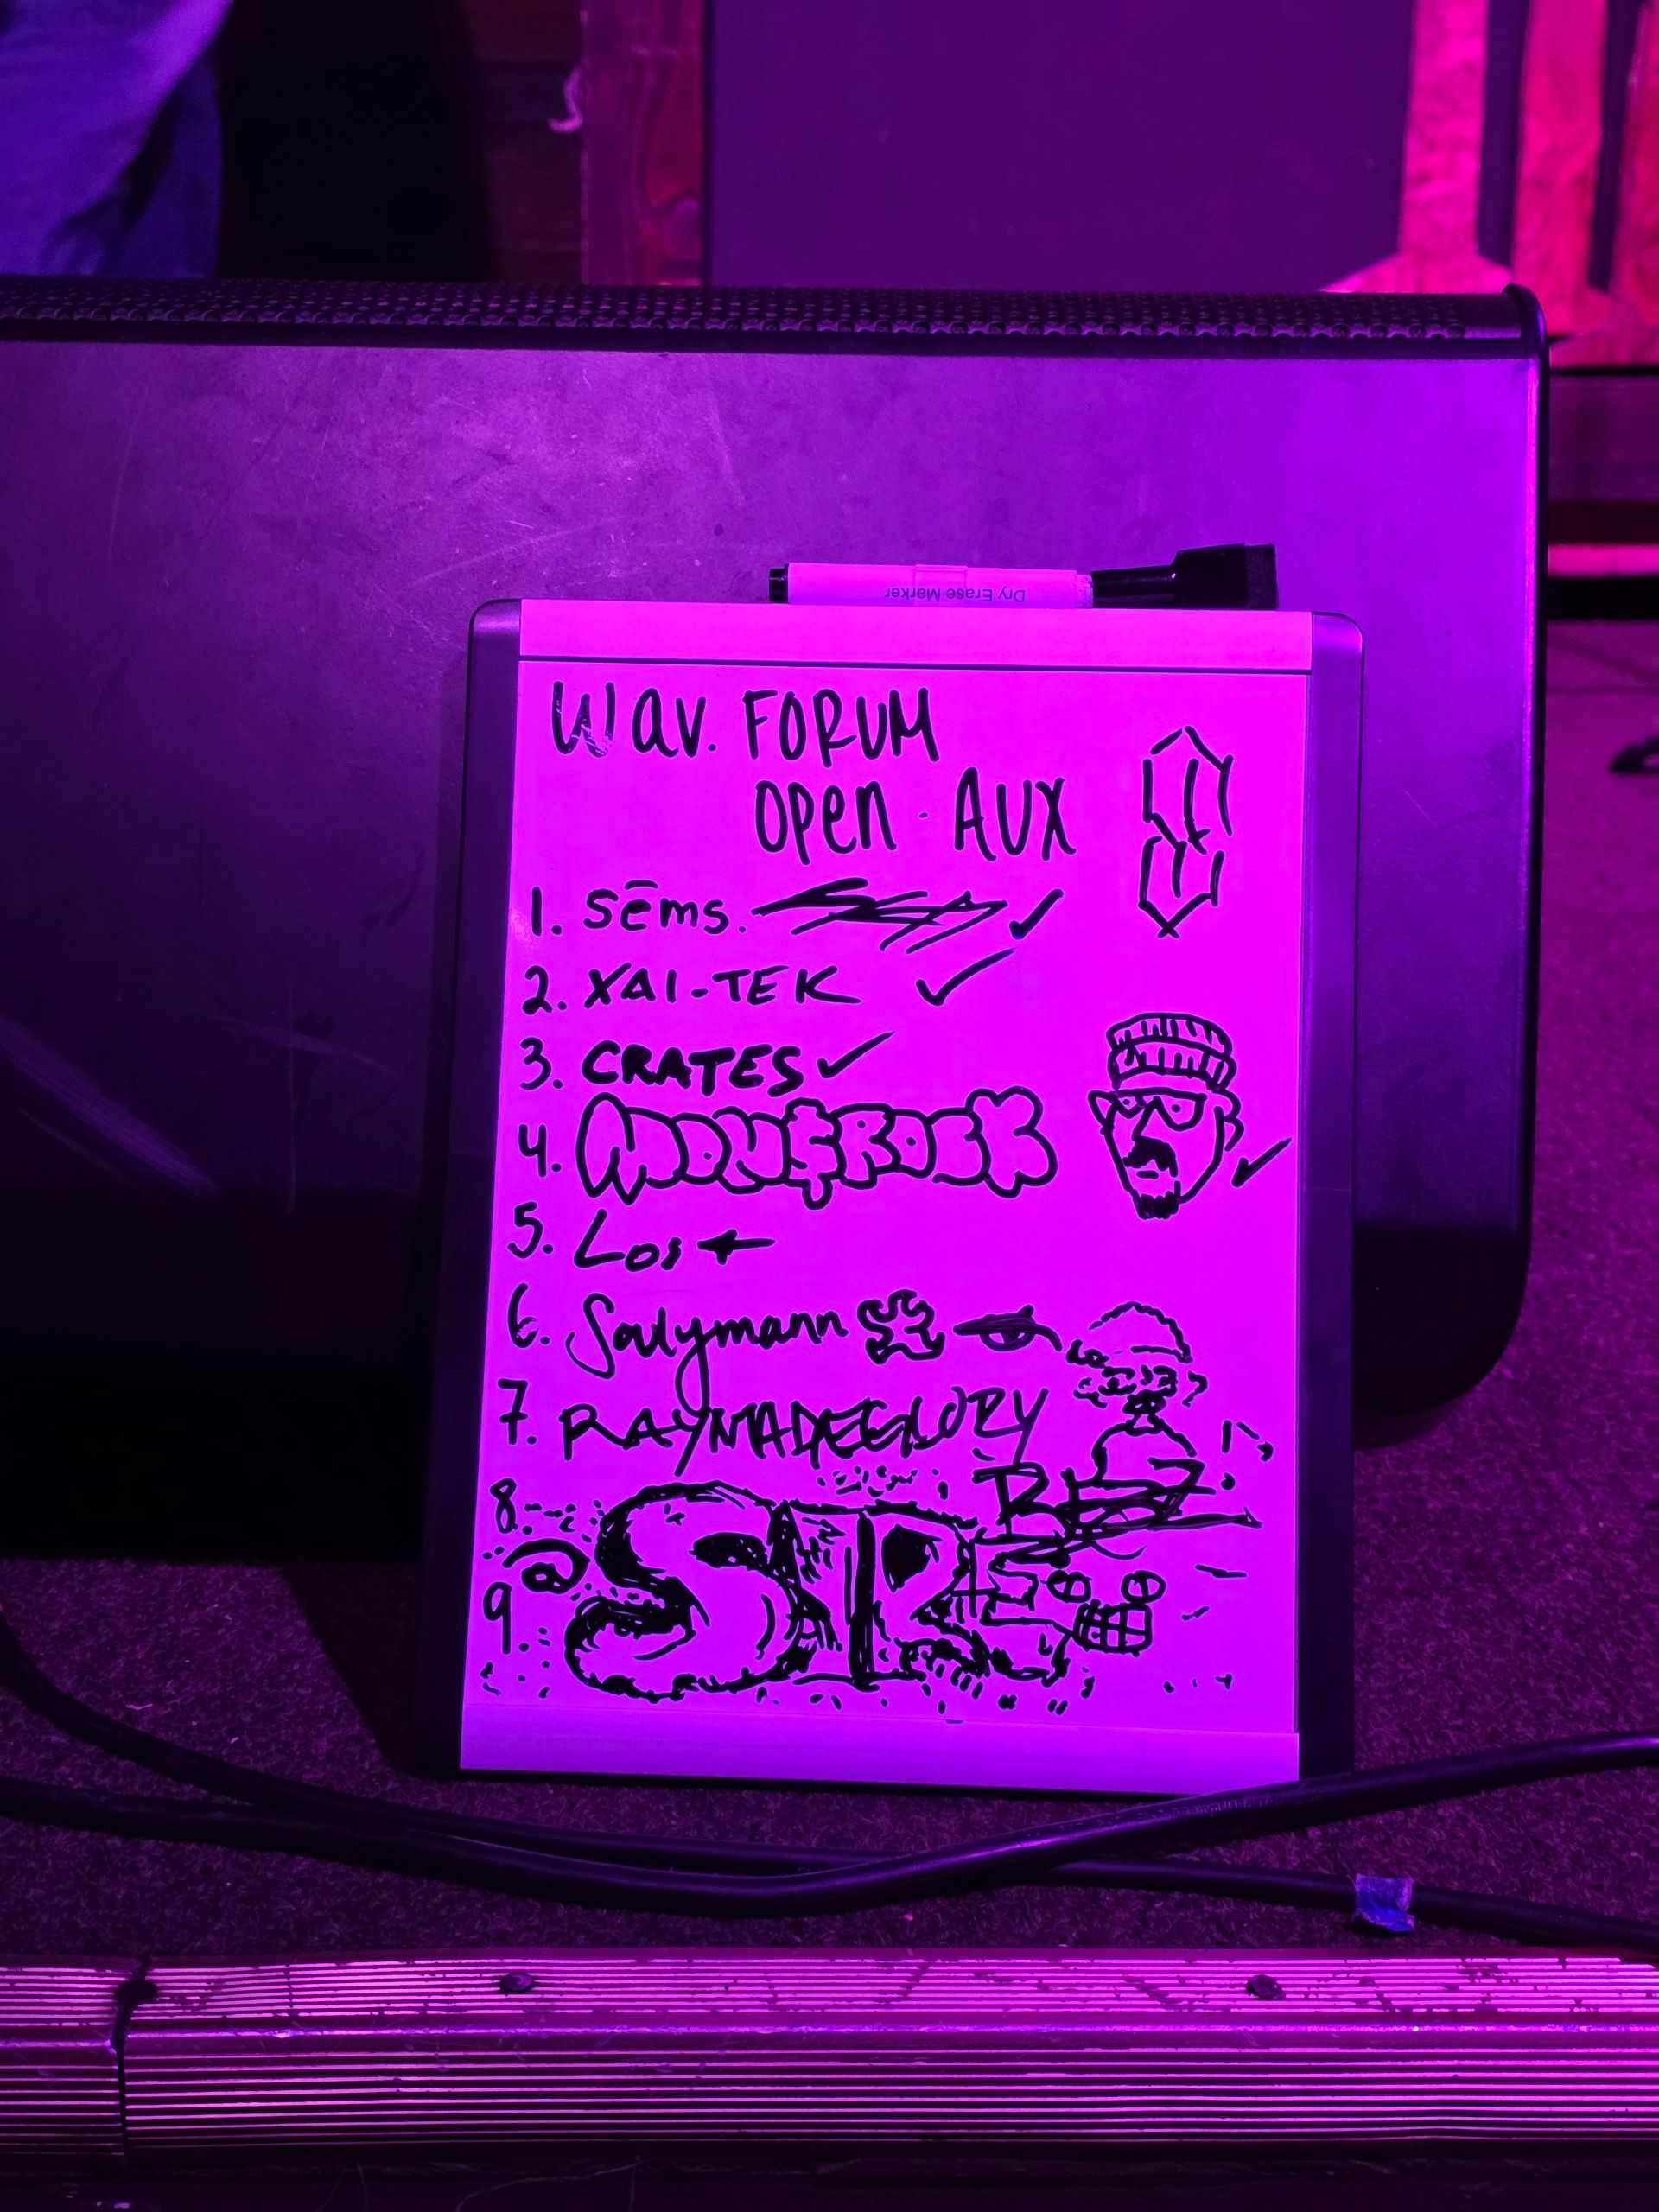 Dry Erase Marker
Wav. FORUM
Open · AUX
1. sēms.
2. XAI-TEK
3. CRATES
4.
5. Los
6. Soulymann
7. RAYMADEGLORY
8.
9.